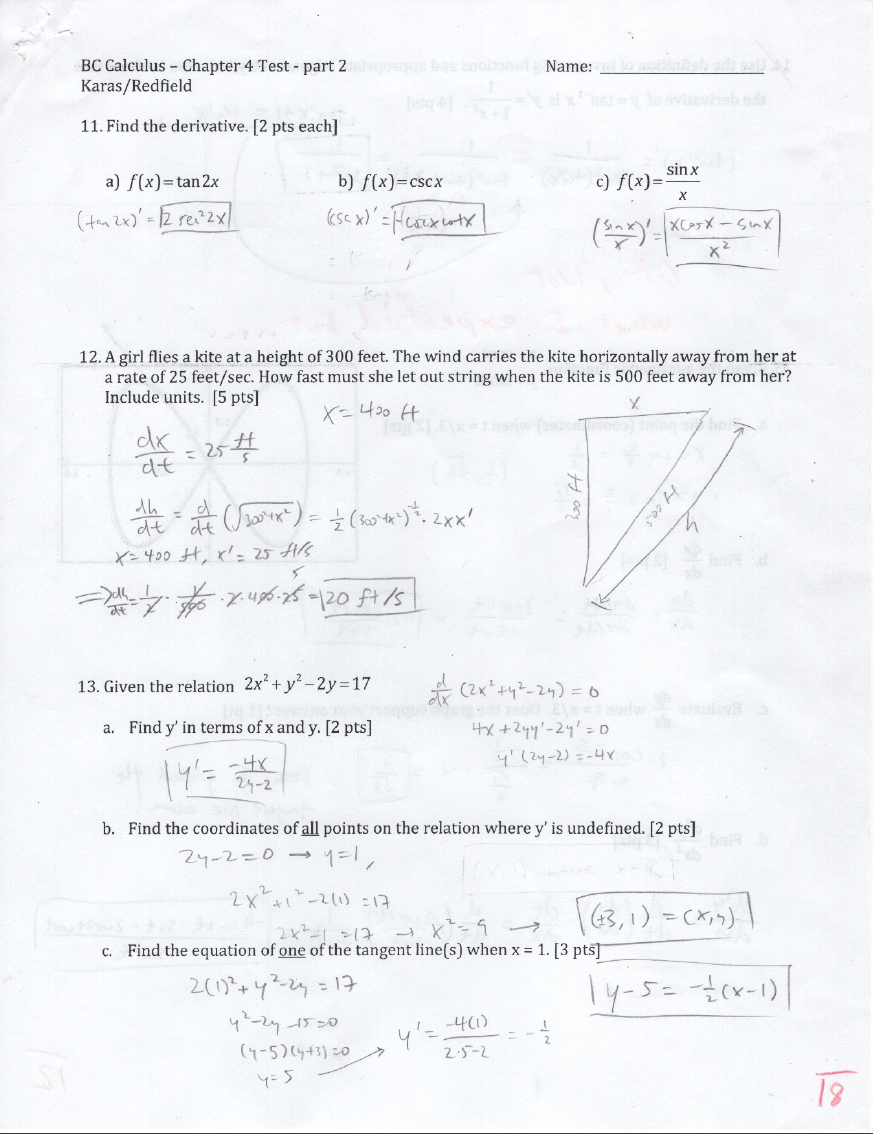 BC Calculus – Chapter 4 Test - part 2 Name:
Karas/Redfield
11. Find the derivative. [2 pts each]
a) f(x)=tan2x b) f(x)=cscx c) f(x)=sin x/x
(tan 2x)' = 2 sec²2x (csc x)' = -cscxcotx (sin x/x)' = (xcosx - sinx)/x²
12. A girl flies a kite at a height of 300 feet. The wind carries the kite horizontally away from her at
a rate of 25 feet/sec. How fast must she let out string when the kite is 500 feet away from her?
Include units. [5 pts]
x = 400 ft
x
dx/dt = 25 ft/s
300 ft
500 ft
h
dh/dt = d/dt (√300²+x²) = 1/2 (300²+x²)^-1/2 · 2xx'
x = 400 ft, x' = 25 ft/s
5
⇒ dh/dt = 1/2 · 1/500 · 2 · 400 · 25 = 20 ft/s
13. Given the relation 2x²+y²−2y=17
d/dx (2x²+y²-2y) = 0
a. Find y' in terms of x and y. [2 pts]
4x+2yy'-2y' = 0
y'(2y-2) = -4x
y' = -4x/(2y-2)
b. Find the coordinates of all points on the relation where y' is undefined. [2 pts]
2y-2=0 → y=1,
2x²+1²-2(1) = 17
2x²-1 = 17 → x² = 9 → (±3, 1) = (x,y)
c. Find the equation of one of the tangent line(s) when x = 1. [3 pts]
2(1)²+y²-2y = 17
y-5 = -1/2(x-1)
y²-2y-15=0
(y-5)(y+3)=0
y' = -4(1)/(2·5-2) = -1/2
y=5
18